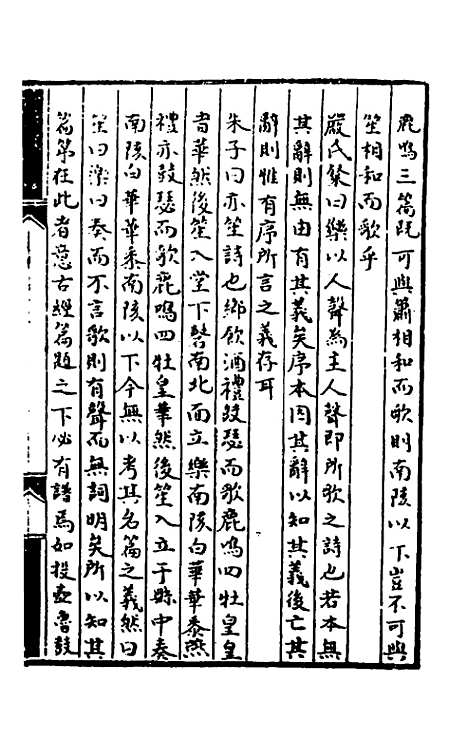 鹿鳴三篇既可與簫相和而歌則南陔以下豈不可與
笙相和而歌乎
嚴氏粲曰樂以人聲為主人聲即所歌之詩也若本無
其辭則無由有其義矣序本因其辭以知其義後亡其
辭則惟有序所言之義存耳
朱子曰亦笙詩也鄉飲酒禮鼓瑟而歌鹿鳴四牡皇皇
者華然後笙入堂下磬南北面立樂南陔白華華黍燕
禮亦鼓瑟而歌鹿鳴四牡皇華然後笙入立于縣中奏
南陔白華華黍南陔以下今無以考其名篇之義然曰
笙曰樂曰奏而不言歌則有聲而無詞明矣所以知其
篇第在此者意古經篇題之下必有譜焉如投壺魯鼓